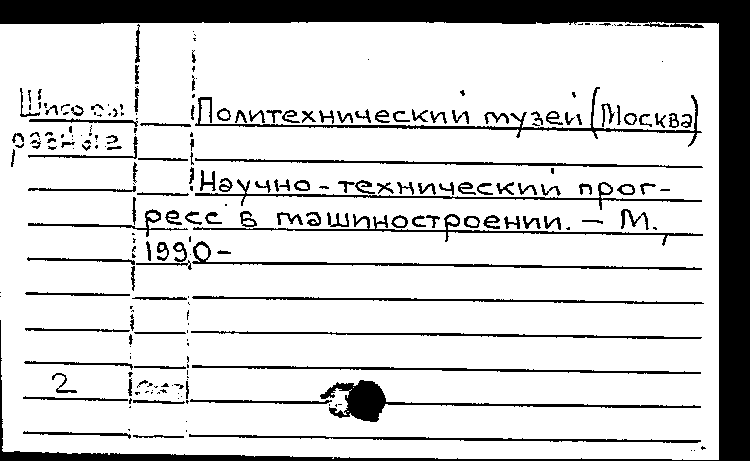 Шифры
разные
Политехнический музей (Москва)
Научно-технический прог-
ресс в машиностроении. — М.,
1990-
2